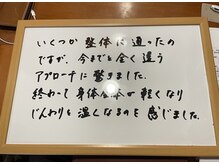 いくつか 整体に 通ったの
ですが、今までと全く違う
アプローチに驚きました。
終わって 身体全体が 軽くなり
じんわりと 温くなるのを 感じました。